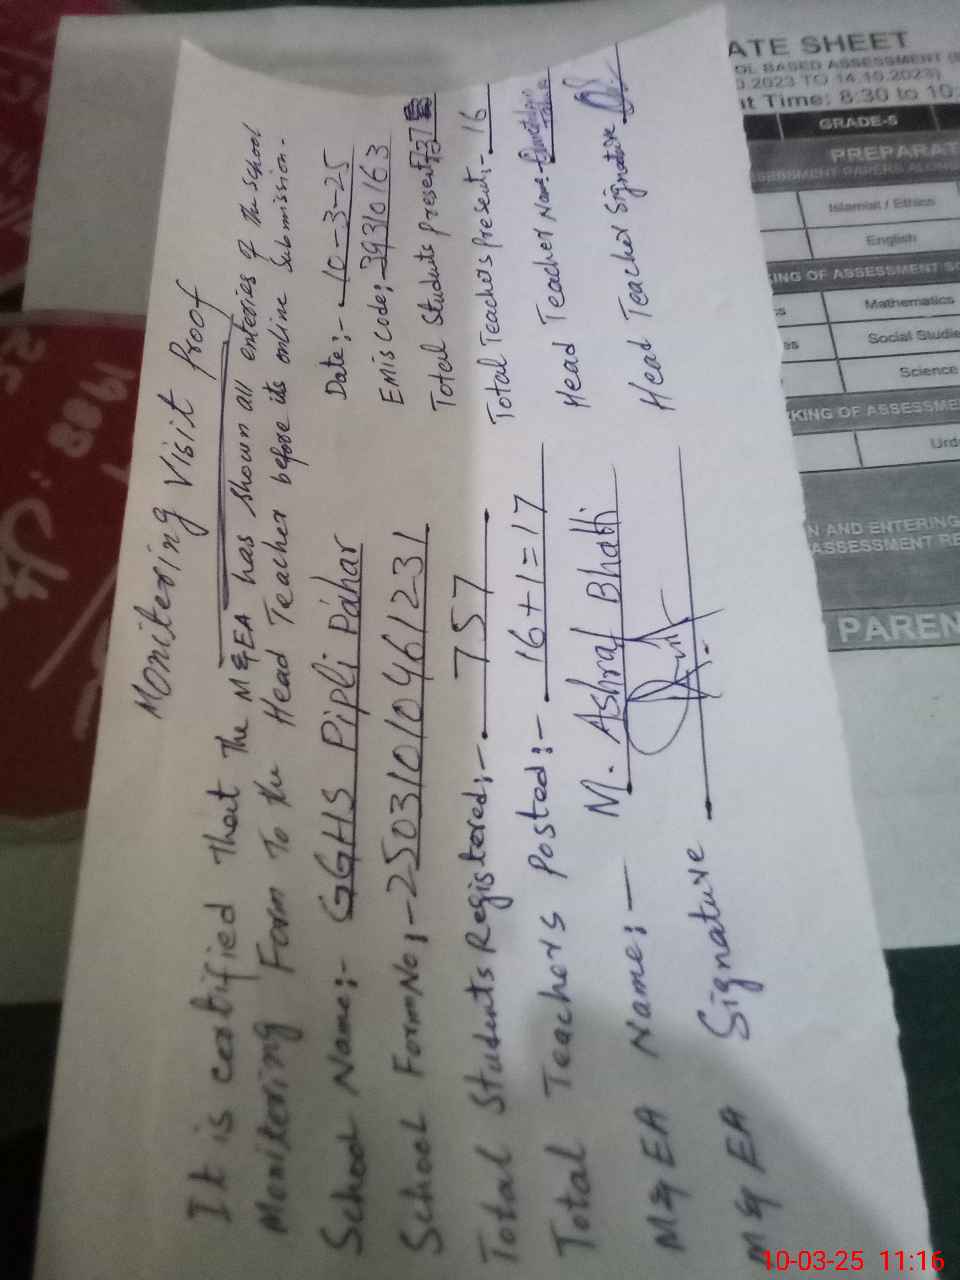 Monitering Visit Proof
It is certified that the M&EA has shown all enteries of the school
Monitering Form To the Head Teacher before its online Submission.
School Name:- GGHS Pipli Pahar
Date:- 10-3-25
School Form No:- 2503101046 1231
EMIS Code: 39310163
Total Students Registered:- 757
Total Students present:-
Total Teachers Posted:- 16+1=17
Total Teachers Present:- 16
M&EA Name:- M. Ashraf Bhatti
Head Teacher Name:-
M&EA Signature
Head Teacher Signature
ATE SHEET
OL BASED ASSESSMENT
0.2023 TO 14.10.2023)
t Time: 8:30 to 10
GRADE-5
PREPARAT
SESSMENT PAPERS
Islamiat / Ethics
English
ING OF ASSESSMENT SC
Mathematics
es
Social Studie
Science
KING OF ASSESSME
Urd
N AND ENTERING
ASSESSMENT RE
PAREN
1988
25
10-03-25 11:16